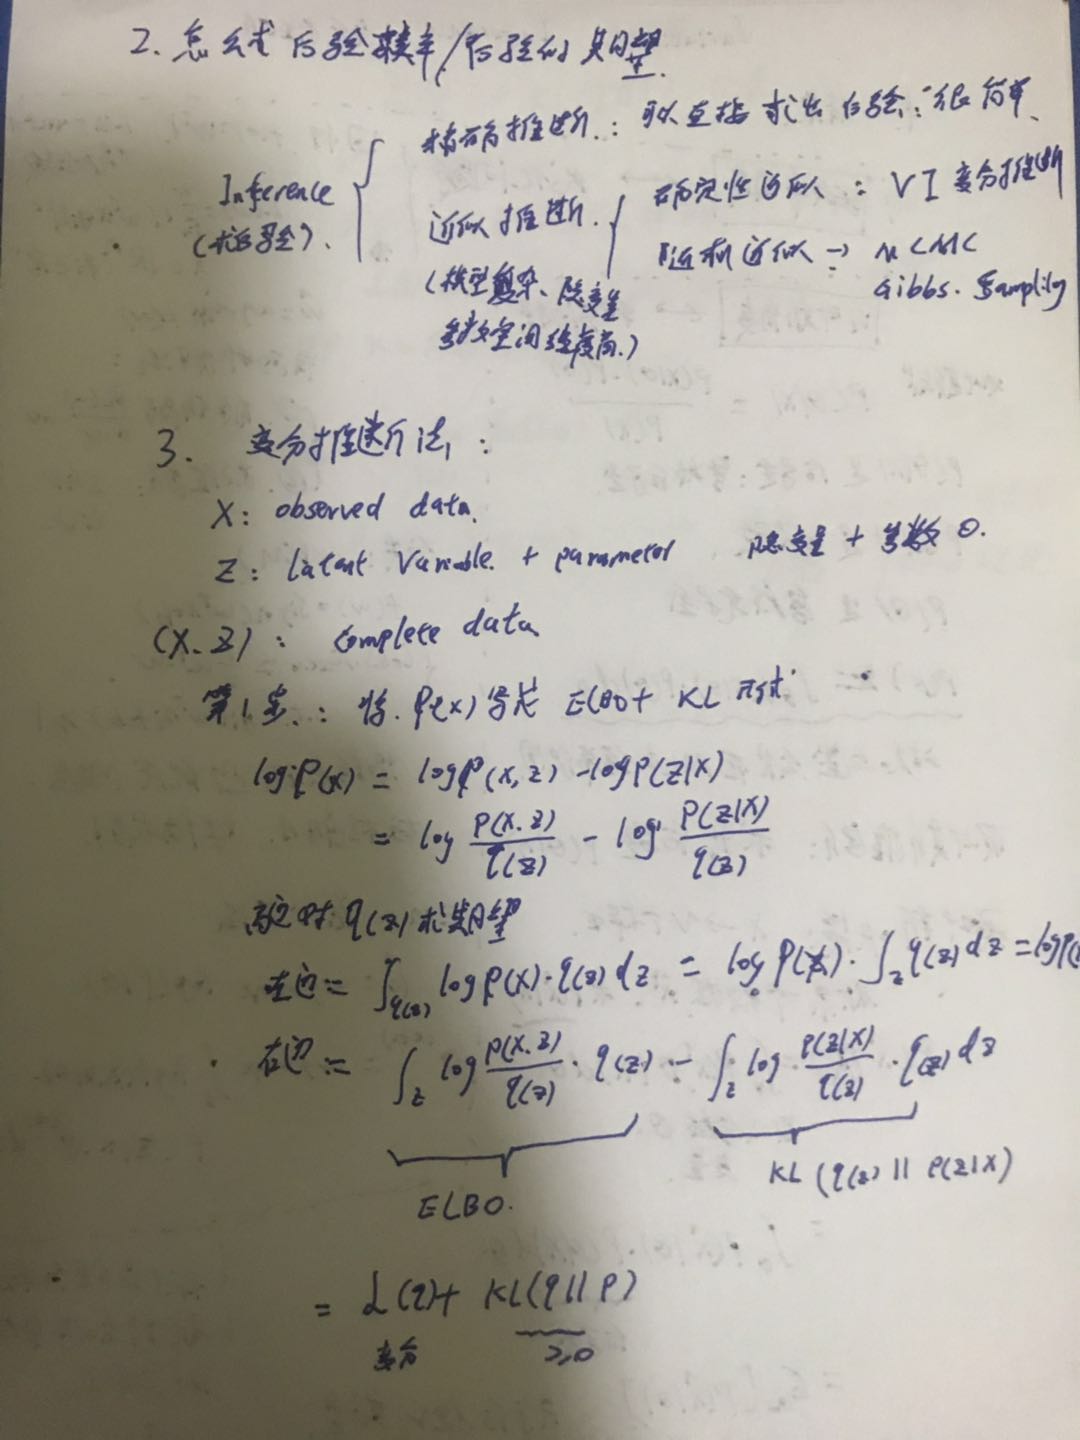 2. 怎么求后验概率/后验的期望.
精确推断: 可以直接求出后验; 很简单.
Inference
(求后验).
近似推断.
确定性近似: VI 变分推断
随机近似 → MCMC
Gibbs. Sampling
(模型复杂、隐变量
参数空间维度高.)
3. 变分推断法:
X: observed data.
Z: latent Variable. + parameter 隐变量 + 参数 θ.
(X.Z): complete data
第1步.: 将. P(X) 写成 ELBO + KL 形式.
log P(X) = log P(X,Z) - log P(Z|X)
= log P(X.Z)/q(Z) - log P(Z|X)/q(Z)
对 q(Z) 求期望
左边 = ∫q(Z) log P(X)·q(Z) dZ = log P(X)·∫Z q(Z) dZ = log P(
右边 = ∫Z log P(X.Z)/q(Z) · q(Z) - ∫Z log P(Z|X)/q(Z) · q(Z) dZ
ELBO. KL (q(Z) || P(Z|X)
= L(q) + KL(q||P)
变分 ≥0